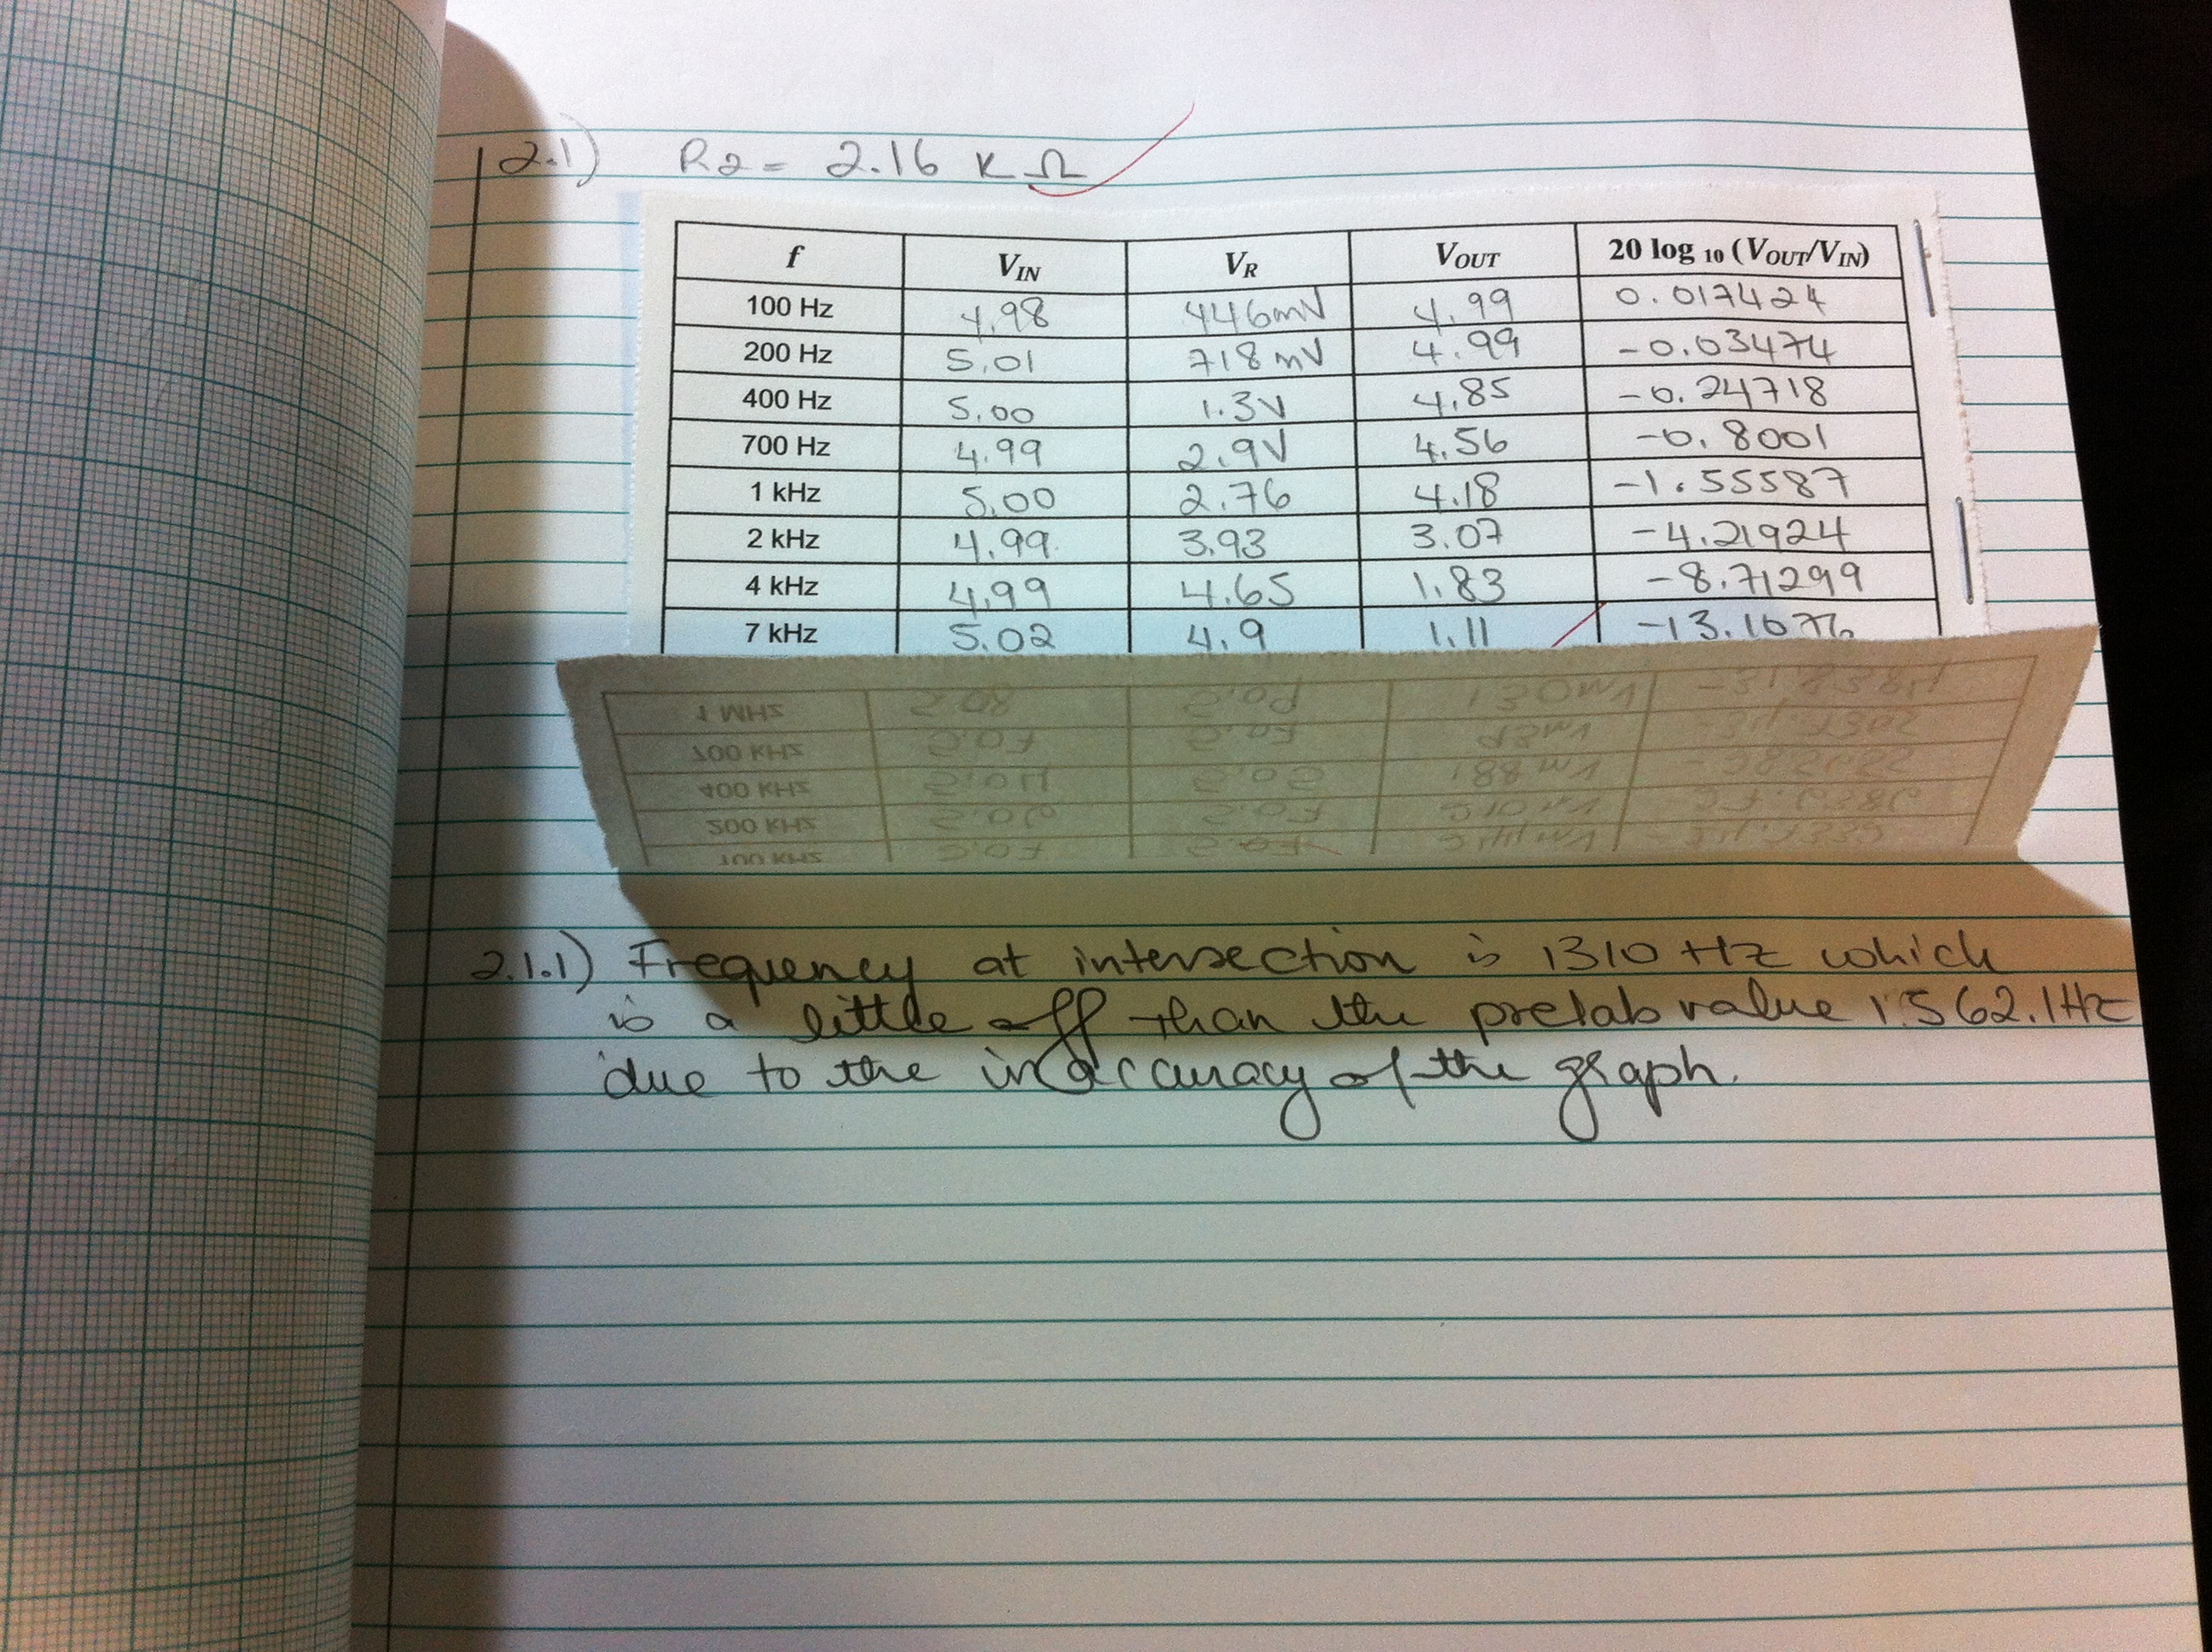 2.1) R2 = 2.16 K Ω
f VIN VR VOUT 20 log 10 (VOUT/VIN)
100 Hz 4.98 446mV 4.99 0.017424
200 Hz 5.01 718 mV 4.99 -0.03474
400 Hz 5.00 1.3V 4.85 -0.24718
700 Hz 4.99 2.9V 4.56 -0.8001
1 kHz 5.00 2.76 4.18 -1.55587
2 kHz 4.99 3.93 3.07 -4.21924
4 kHz 4.99 4.65 1.83 -8.71299
7 kHz 5.02 4.9 1.11
1 MHz 130mV
700 kHz
400 kHz
200 kHz
100 kHz
2.1.1) Frequency at intersection is 1310 Hz which
is a little off than the prelab value 1562.1Hz
due to the inaccuracy of the graph.